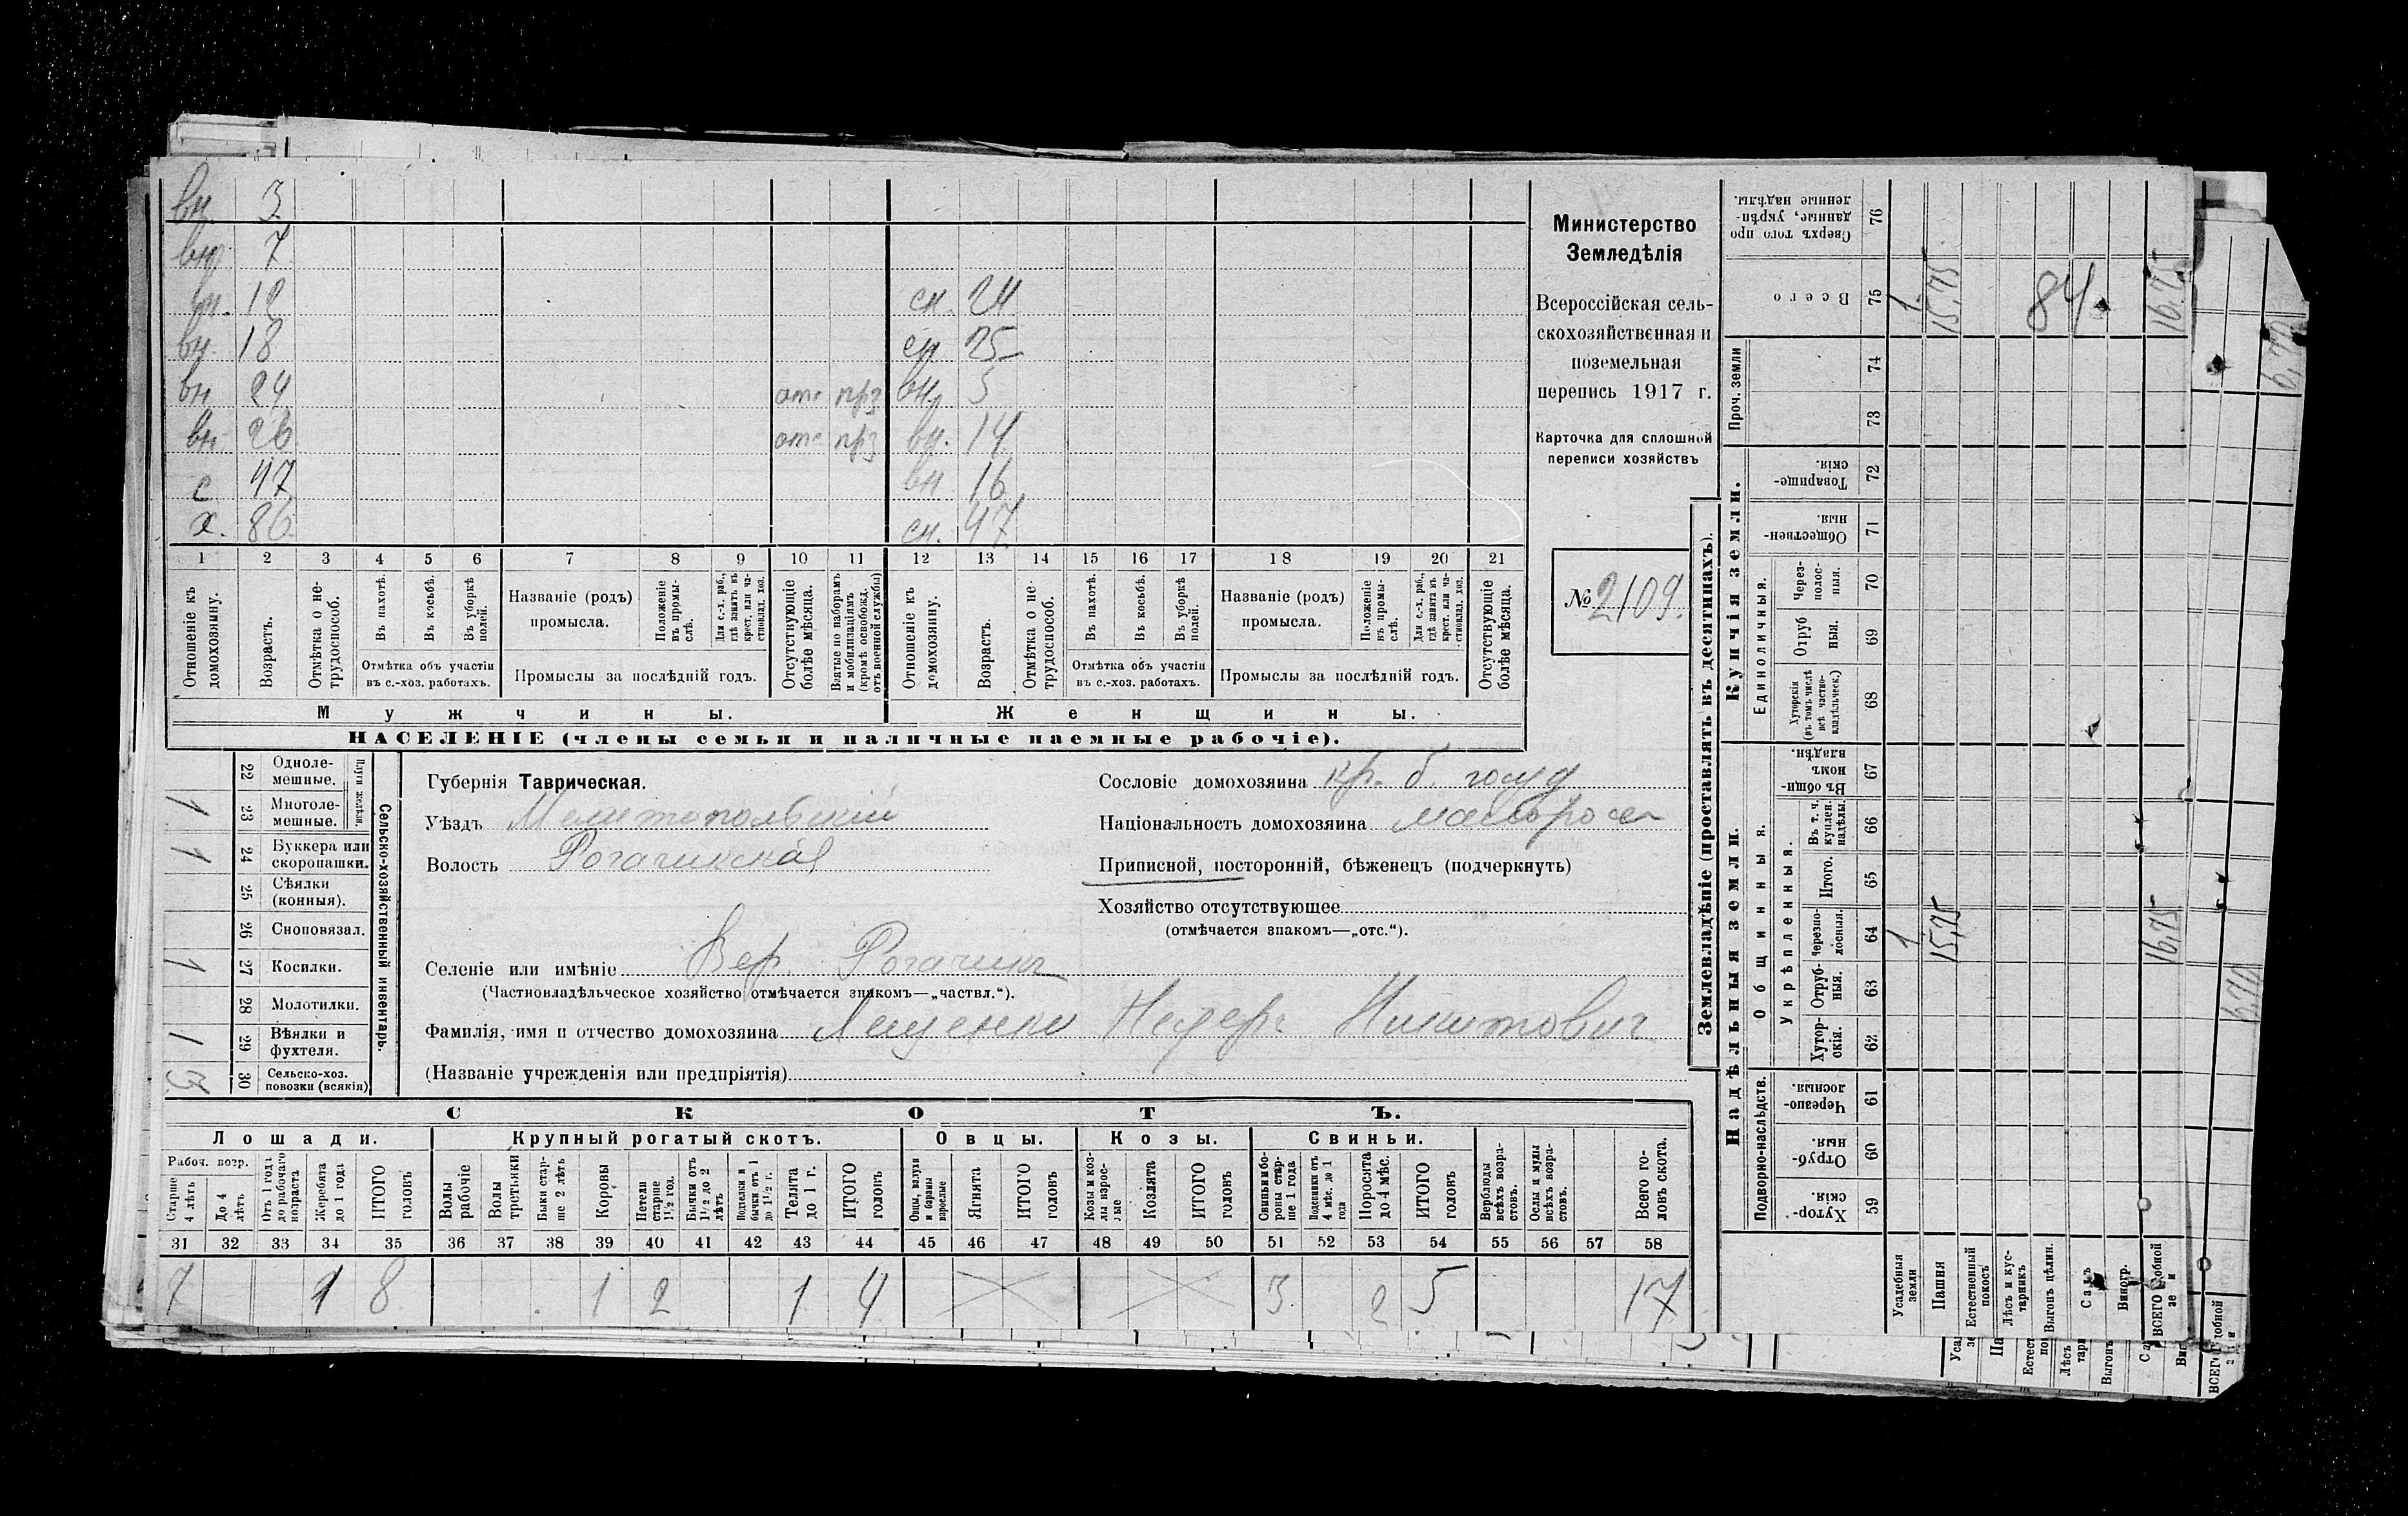 вн. 3
вн. 7
вн. 12 сн. 24
вн. 18 сн. 25
вн 24 отс прз вн. 5
вн. 26 отс прз вн. 14
с 47 вн 16
х. 86 сн. 47
1 2 3 4 5 6 7 8 9 10 11 12 13 14 15 16 17 18 19 20 21
Отношеніе къ домохозяину.
Возрастъ.
Отмѣтка о не-трудоспособ.
Въ пахотѣ.
Въ косьбѣ.
Въ уборкѣ полей.
Отмѣтка объ участіи въ с.-хоз. работахъ.
Названіе (родъ) промысла.
Положеніе въ промы-слѣ.
Для с.-х. раб., гдѣ занятъ въ крест. или ча-стновлад. хоз.
Промыслы за послѣдній годъ.
Отсутствующіе болѣе мѣсяца.
Взятые по наборамъ и мобилизаціямъ (кромѣ освобожд. отъ военной службы)
Отношеніе къ домохозяину.
Возрастъ.
Отмѣтка о не-трудоспособ.
Въ пахотѣ.
Въ косьбѣ.
Въ уборкѣ полей.
Отмѣтка объ участіи въ с.-хоз. работахъ.
Названіе (родъ) промысла.
Положеніе въ промы-слѣ.
Для с.-х. раб., гдѣ занята въ крест. или ча-стновлад. хоз.
Промыслы за послѣдній годъ.
Отсутствующіе болѣе мѣсяца.
Мужчины. Женщины.
НАСЕЛЕНІЕ (члены семьи и наличные наемные рабочіе).
Министерство
Земледѣлія
Всероссійская сель-
скохозяйственная и
поземельная
перепись 1917 г.
Карточка для сплошной
переписи хозяйствъ
№ 2109.
Сельско-хозяйственный инвентарь.
Плуги желѣзн.
22 Одноле-мешные.
1 23 Многоле-мешные.
1 24 Буккера или скоропашки.
25 Сѣялки (конныя).
26 Сноповязал.
1 27 Косилки.
28 Молотилки.
1 29 Вѣялки и фухтеля.
3 30 Сельско-хоз. повозки (всякія)
Губернія Таврическая.
Уѣздъ Мелитопольскій
Волость Рогачикская
Селеніе или имѣніе Вер. Рогачикъ
(Частновладѣльческое хозяйство отмѣчается знакомъ—„частвл.“).
Фамилія, имя и отчество домохозяина Лещенко Никитович
(Названіе учрежденія или предпріятія)
Сословіе домохозяина кр. б. госуд
Національность домохозяина малорос
Приписной, посторонній, бѣженецъ (подчеркнуть)
Хозяйство отсутствующее
(отмѣчается знакомъ—„отс.“).
СКОТЪ.
Лошади. Крупный рогатый скотъ. Овцы. Козы. Свиньи.
Рабоч. возр.
Старше 4 лѣтъ
До 4 лѣтъ
Отъ 1 года до рабочаго возраста
Жеребята до 1 года
ИТОГО головъ
Волы рабочіе
Волы третьяки
Быки стар-ше 2 лѣтъ
Коровы
Нетели старше 1½ год.
Бычки отъ 1½ до 2 лѣтъ
Подтелки и бычки отъ 1 до 1½ г.
Телята до 1 г.
ИТОГО головъ
Овцы, валухи и бараны взрослые
Ягнята
ИТОГО головъ
Козы и коз-лы взрос-лые
Козлята
ИТОГО головъ
Свиньи и бо-ровы стар-ше 1 года
Подсвинки отъ 4 мѣс. до 1 года
Поросята до 4 мѣс.
ИТОГО головъ
Верблюды всѣхъ возра-стовъ.
Ослы и мулы всѣхъ возра-стовъ.
Всего го-ловъ скота.
31 32 33 34 35 36 37 38 39 40 41 42 43 44 45 46 47 48 49 50 51 52 53 54 55 56 57 58
7 1 8 1 2 1 4 3 2 5 17
Землевладѣніе (проставлять въ десятинахъ).
Надѣльныя земли. Купчія земли. Проч. земли
Подворно-наслѣдств. Общинныя. Единоличныя.
Укрѣпленныя.
Хутор-скія. 59
Отруб-ныя. 60
Черезпо-лосныя. 61
Хутор-скія. 62
Отруб-ныя. 63
Черезпо-лосныя. 64
Итого. 65
Въ т. ч. куплен. надѣлы. 66
Въ общи-номъ владѣн. 67
Хуторскія (въ томъ числѣ всѣ частно-владѣльческ.) 68
Отруб ныя. 69
Через-полос-ныя. 70
Обществен-ныя. 71
Товарище-скія. 72
73
74
Всего 75
Сверхъ того про данные, укрѣп-ленные надѣлы. 76
Усадебныя земли 1 1
Пашня 15,75 15,75
Естественный покосъ
Лѣсъ и кус-тарникъ
Выгонъ цѣлин.
Садъ
Виногр.
ВСЕГО 16,75 16,75
84